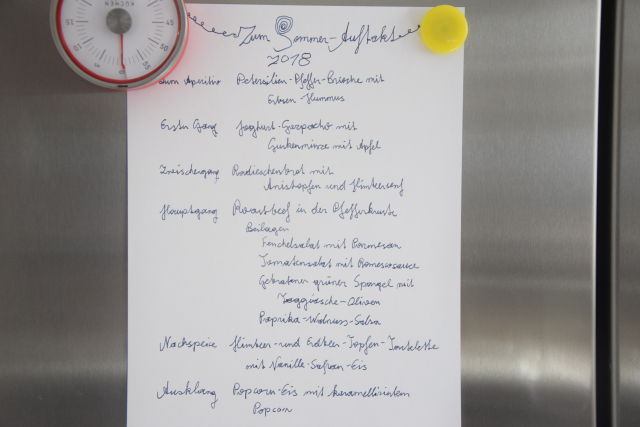 KÜCHEN
Zum Sommer-Auftakt
2018
Zum Aperitiv Petersilien-Pfeffer-Brioche mit
Erbsen-Hummus
Erster Gang Joghurt-Gazpacho mit
Gurkenminze mit Apfel
Zwischengang Radieschenbrot mit
und Himbeersenf
Hauptgang Roastbeef in der Pfefferkruste
Beilagen
Fenchelsalat mit Parmesan
Tomatensalat mit Romescosauce
Gebratener grüner Spargel mit
Taggiasche-Oliven
Paprika-Walnuss-Salsa
Nachspeise Himbeer-und Erdbeer-Topfen-Tartelette
mit Vanille-Safran-Eis
Ausklang Popcorn-Eis mit karamellisiertem
Popcorn